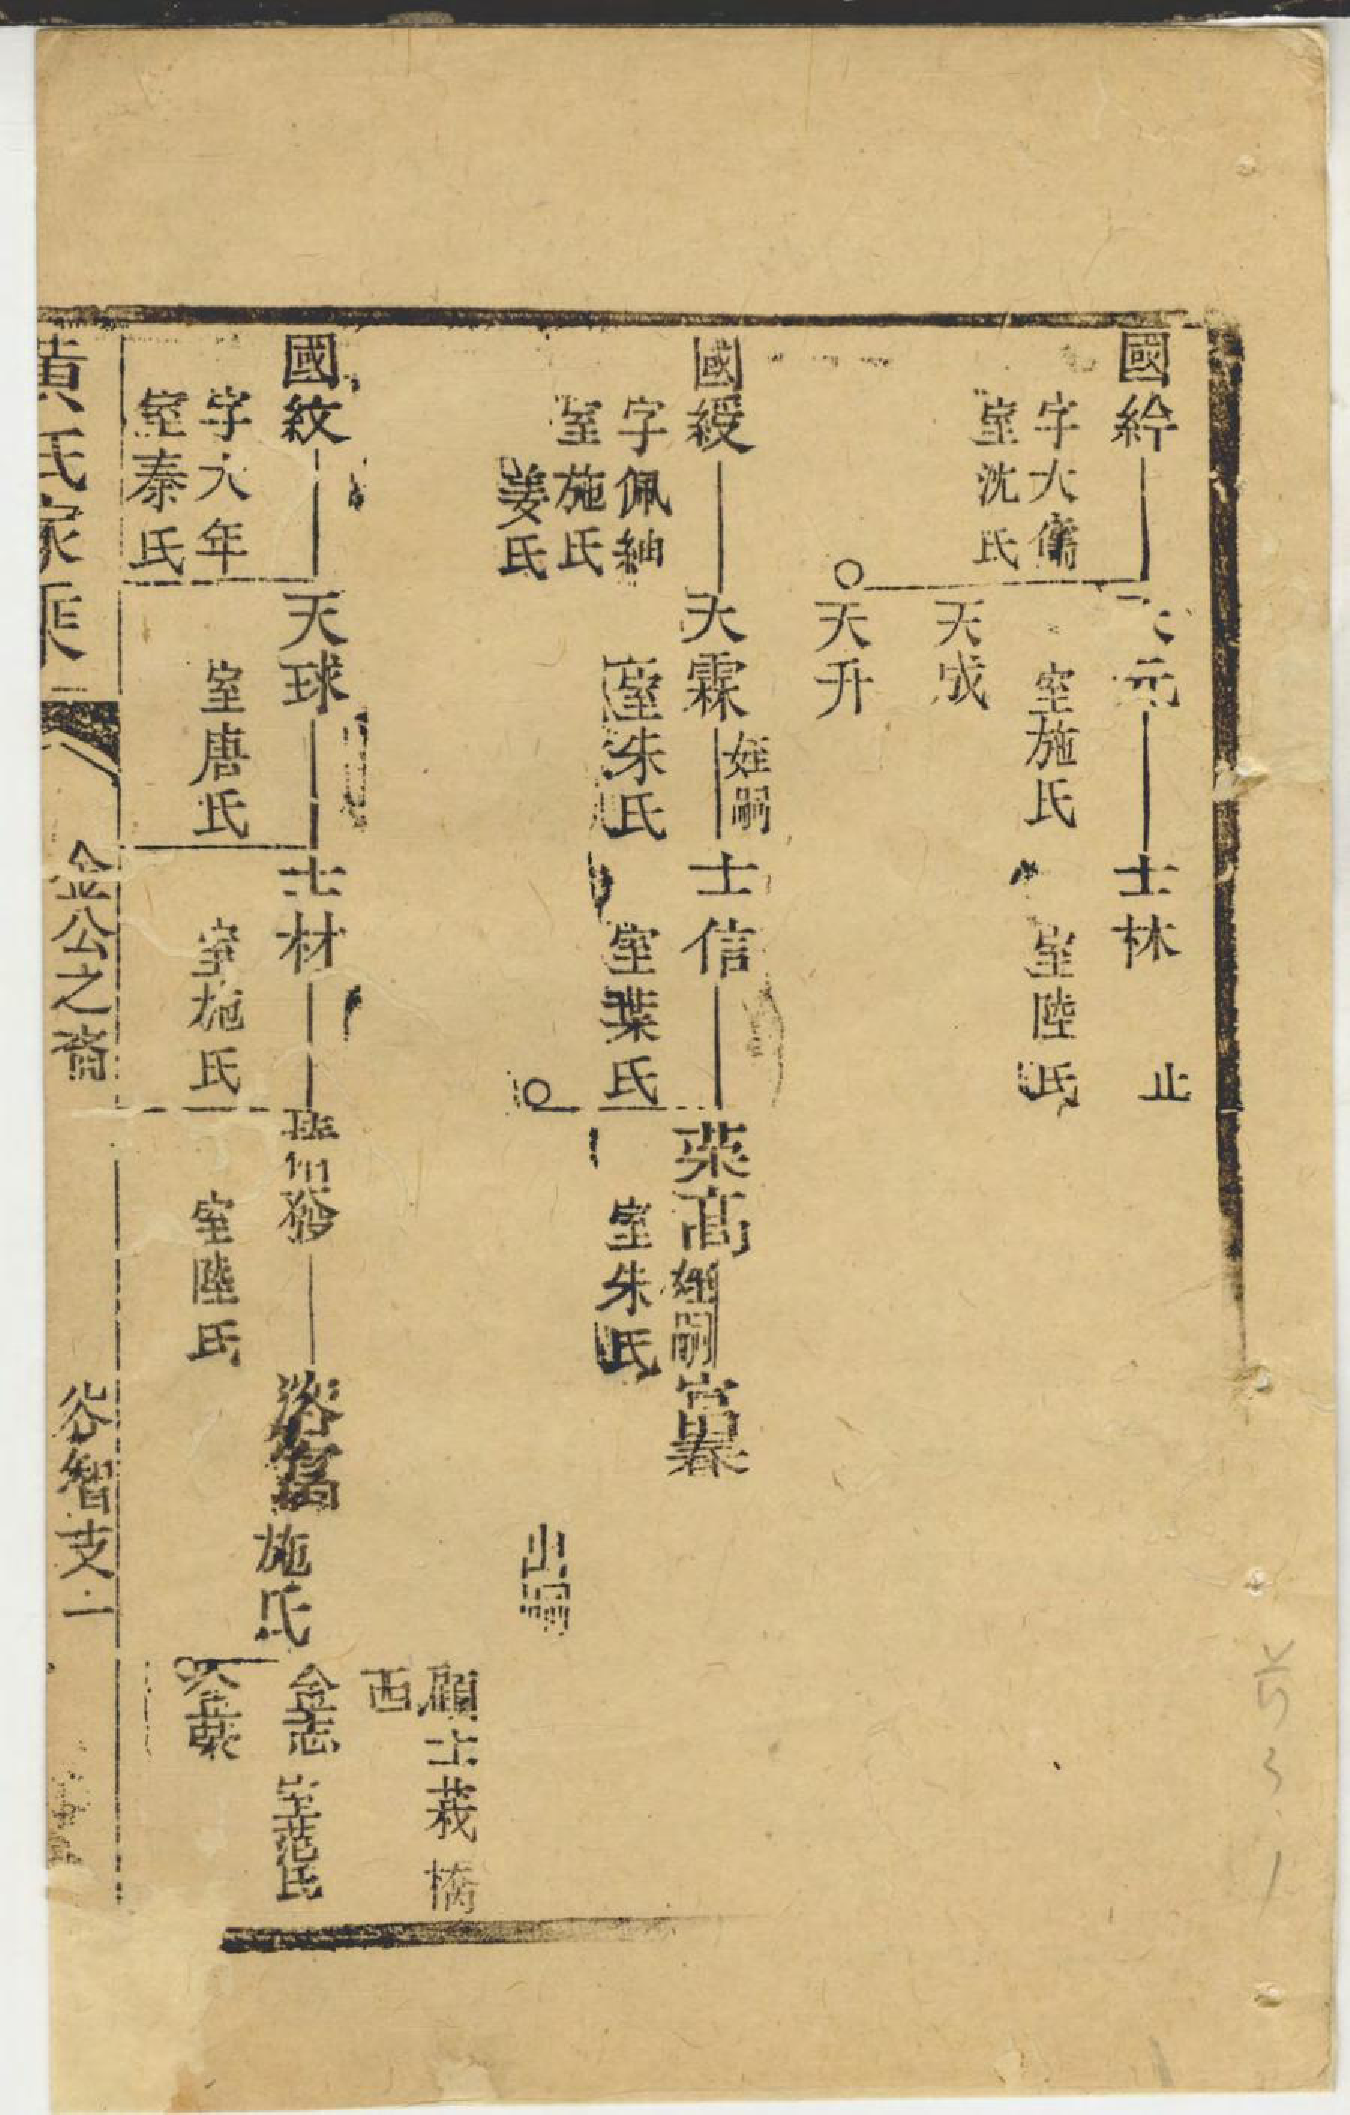 國紟
字大儒
室沈氏
元
室施氏
士林
室陸氏
止
天成
天升
國綬
字佩紬
室施氏
姜氏
天霖
姪嗣
室朱氏
士信
室葉氏
荣高
姪嗣
富春
室朱氏
出嗣
顧士莪橋
西
國紋
字大年
室秦氏
天球
室唐氏
士材
室施氏
發
室陸氏
施氏
金志
室范氏
金葵
黃氏家乘
金公之裔
谷智支一